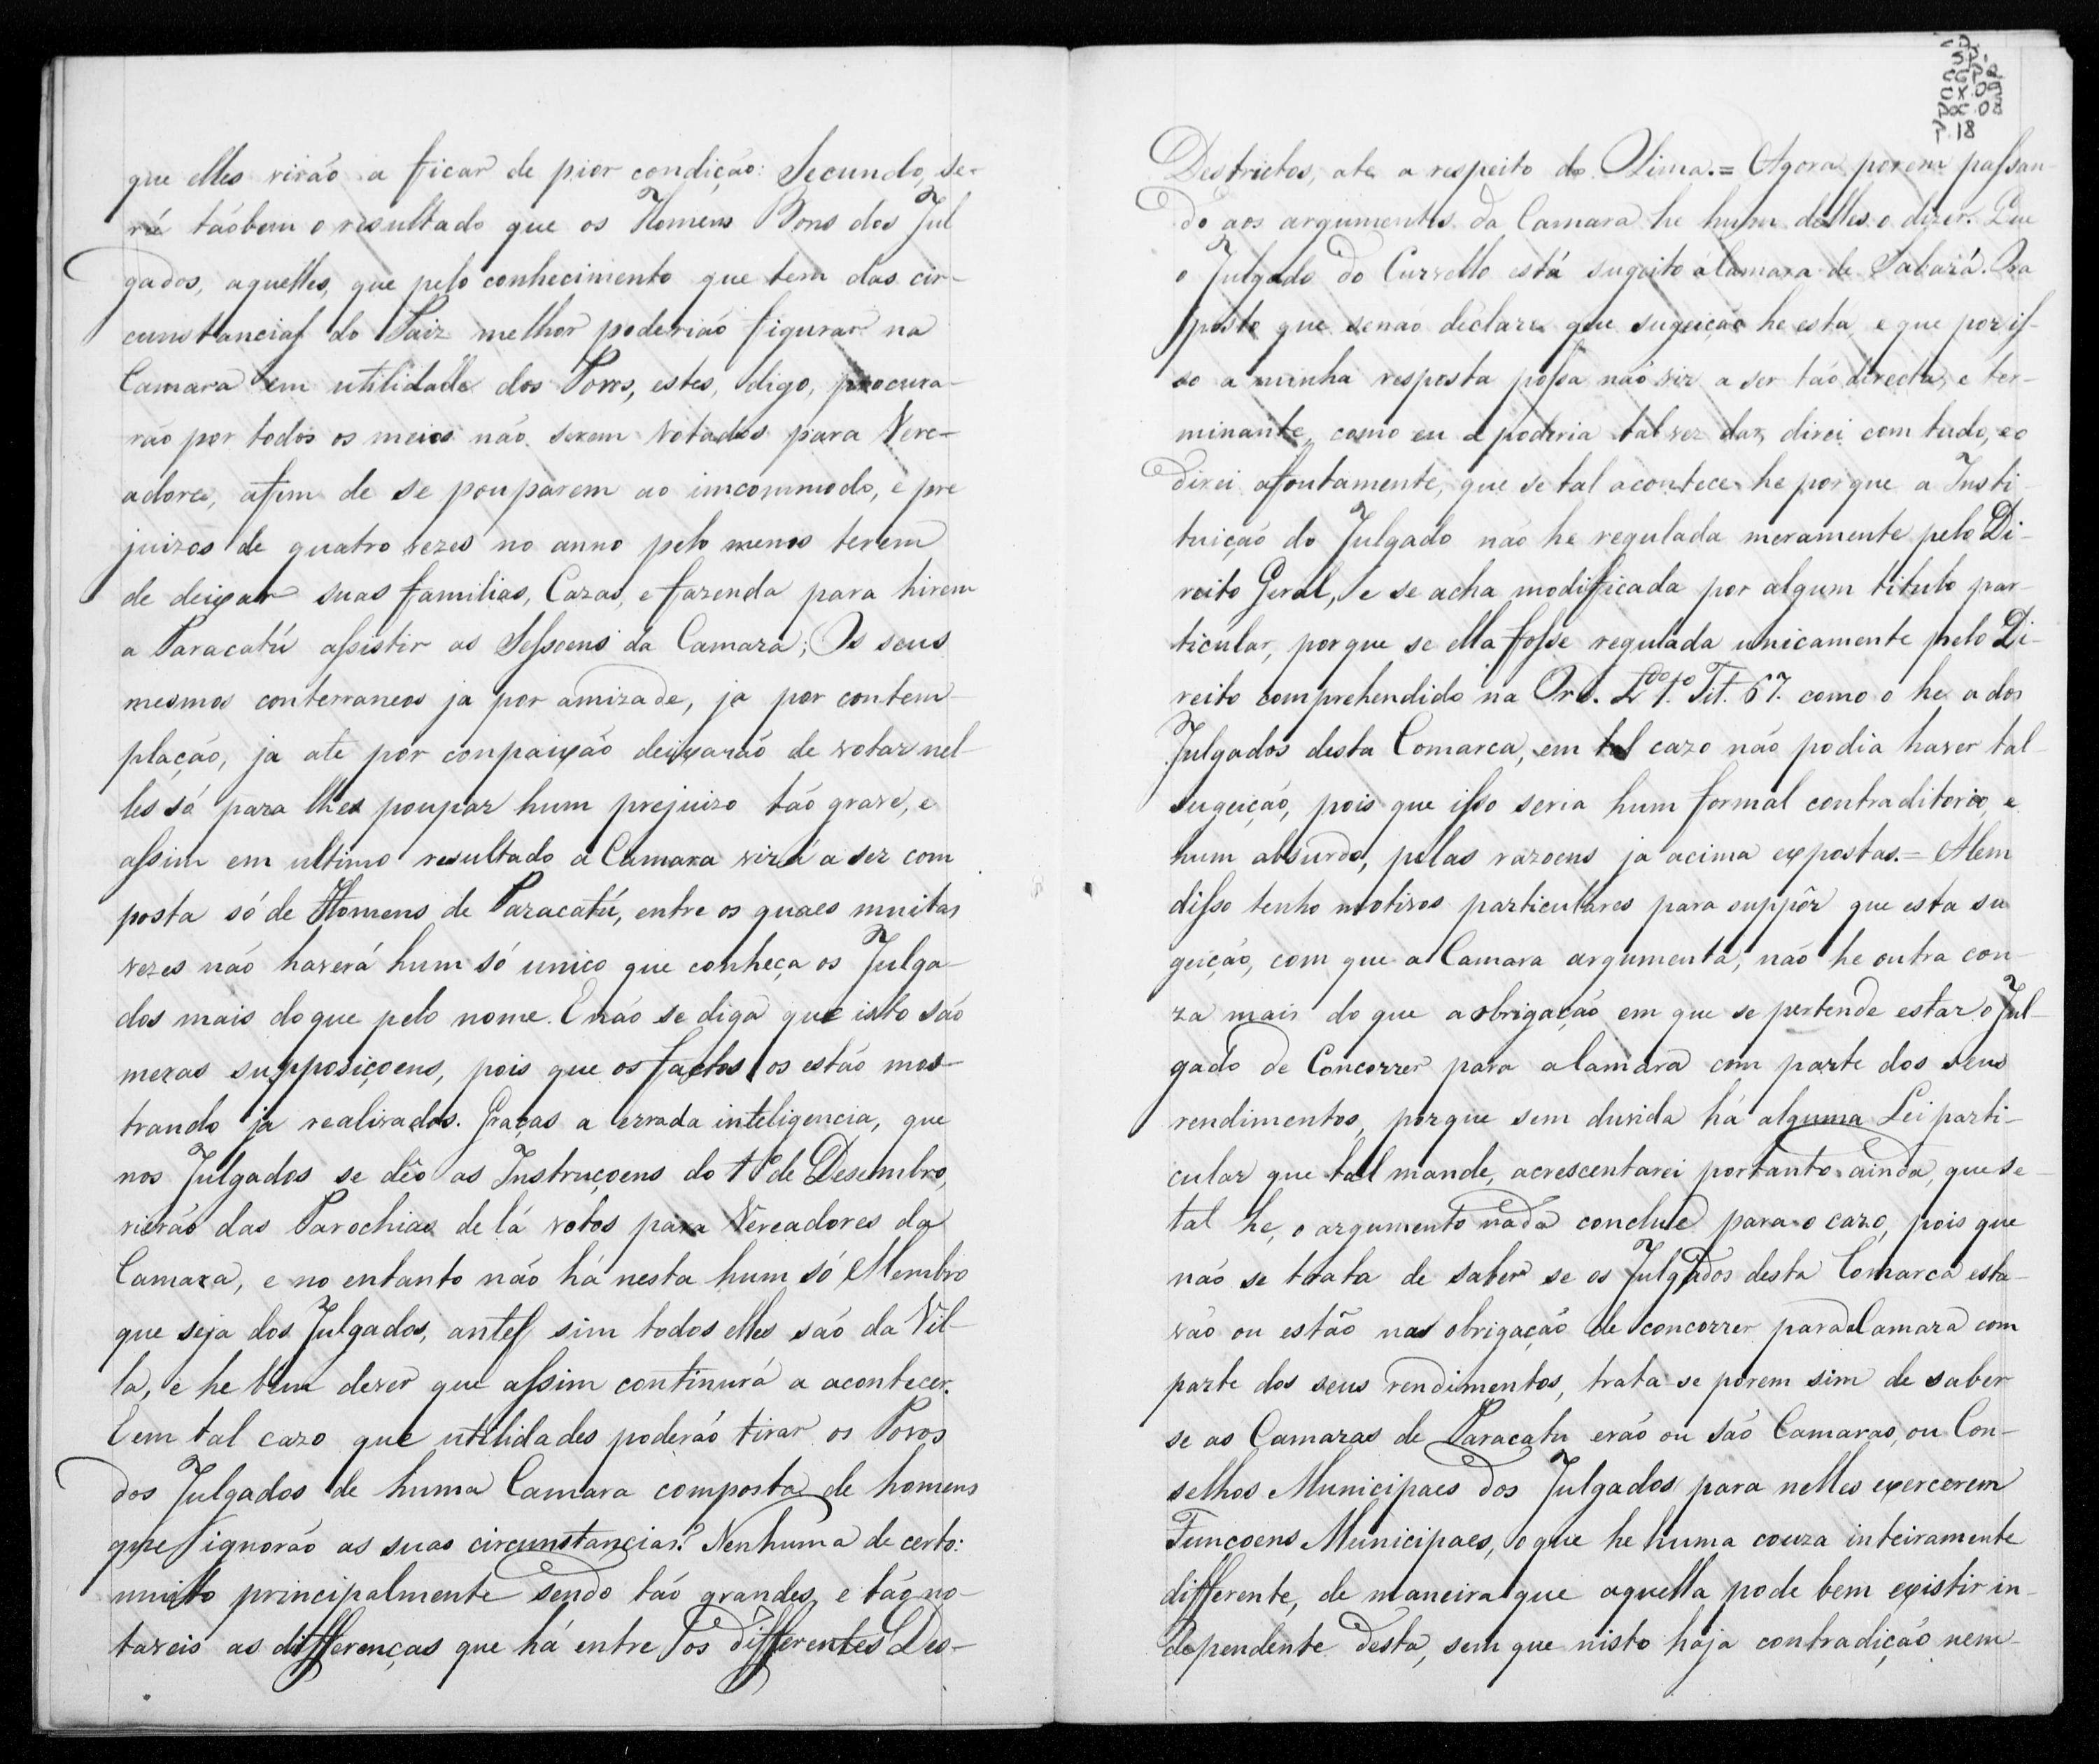 que elles virão a ficar de pior condição: Secundo, se-
rá tãobem o resultado que os Homens Bons dos Jul
gados, aquelles, que pelo conhecimento que tem das cir-
cunstancias do Paiz melhor poderião figurar na
Camara em utilidade dos Povos, estes, digo, procura-
rão por todos os meios não serem votados para Vere-
adores, afim de se pouparem ao imcommodo, e pre
juizos de quatro vezes no anno pelo menos terem
de deixar suas familias, Cazas, e fazenda para hirem
a Paracatú assistir as Sessoens da Camara; Os seus
mesmos conterraneos ja por amizade, ja por contem-
plação, ja ate por conpaixão deixarão de votar nel-
les só para lhes poupar hum prejuizo tão grave, e
assim em ultimo resultado a Camara virá a ser com
posta só de Homens de Paracatú, entre os quaes muitas
vezes não haverá hum só unico que conheça os Julga-
dos mais do que pelo nome. E não se diga que isto são
meras supposiçoens, pois que os factos os estão mos-
trando ja realisados. Graças a errada inteligencia, que
nos Julgados se dêo as Instruçoens do 1º de Desembro,
vierão das Parochias de lá votos para Vereadores da
Camara, e no entanto não há nesta hum só Membro
que seja dos Julgados, antes sim todos elles são da Vil-
la, e he bem de ver que assim continurá a acontecer.
E em tal cazo que utilidades poderáõ tirar os Povos
dos Julgados de huma Camara composta de homens
que ignorão as suas circunstancias? Nenhuma de certo:
muito principalmente sendo tão grandes, e tão no-
taveis as differenças que há entre os differentes Des-
P.
SP.
CGP.2
CX.09
DOC.08
P.18
Destrictos, ate a respeito do Clima. = Agora porem passan-
do aos argumentos da Camara he hum delles o dizer. Que
o Julgado do Curvello está sugeito á Camara de Sabará. Ora
posto que se não declare que sugeição he esta, e que por is-
so a minha resposta possa não vir a ser tão directa, e ter-
minante, como eu a poderia talvez dar, direi com tudo, e o
direi afoutamente, que se tal acontece he porque a Insti-
tuição do Julgado não he regulada meramente pelo Di-
reito Geral, e se acha modificada por algum titulo par-
ticular, porque se ella fosse regulada unicamente pelo Di-
reito comprehendido na Ord. Lº 1º Tit. 67. como o he a dos
Julgados desta Comarca, em tal cazo não podia haver tal
sugeição, pois que isso seria hum formal contraditorio, e
hum absurdo, pelas razoens ja acima expostas. = Alem
disso tenho motivos particulares para suppôr que esta su
geição, com que a Camara argumenta, não he outra cou-
za mais do que a obrigação em que se pertende estar o Jul-
gado de Concorrer para a Camara com parte dos seus
rendimentos, porque sem duvida há alguma Lei parti-
cular que tal mande, acrescentarei portanto ainda, que se
tal he, o argumento nada conclue para o cazo, pois que
não se trata de saber se os Julgados desta Comarca esta-
vão ou estão na obrigação de concorrer para a Camara com
parte dos seus rendimentos, trata-se porem sim de saber
se as Camaras de Paracatu erão ou são Camaras, ou Con-
selhos Municipaes dos Julgados para nelles exercerem
Funcoens Municipaes, o que he huma couza inteiramente
differente, de maneira que aquella pode bem existir in-
dependente desta, sem que nisto haja contradição nem-